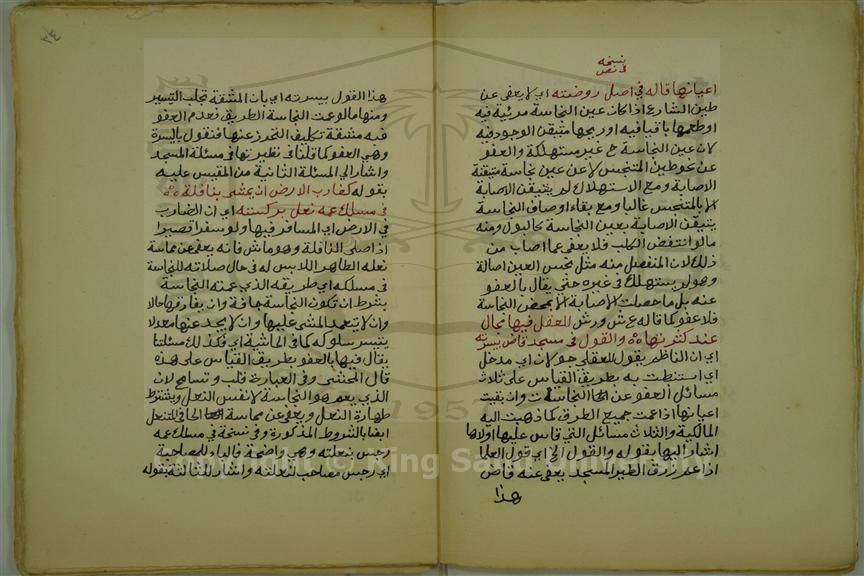 نسخة
في نص
اعيانها قاله في اصل روضته اي لا يعفى عن
طين الشارع اذا كان عين النجاسة مرئية فيه
او طعمها باقيا فيه او ريحها متيقن الوجود فيه
لان عين النجاسة ح غير مستهلكة والعفو
عن نحو طين المتنجس لا عن عين نجاسة متيقنة
الاصابة ومع الاستهلاك لم يتيقن الاصابة
الا بالمتنجس غالبا ومع بقاء اوصاف النجاسة
يتيقن الاصابة بعين النجاسة كالبول ومنه
مالو انتفض الكلب فلا يعفى عما اصاب من
ذلك لان المنفصل منه مثل نجس العين اصالة
وهو لم يستهلك في غيره حتى يقال بالعفو
عنه بل ما حصلت الاصابة الا بمحض النجاسة
فلا عفو كما قاله ع ش ورش للعقل فيها مجال
عند كثرنها ه والقول في مسجد قاض بيسرته
اي ان الناظم يقول للعقلي هو لان اي مدخل
اي استنطت به بطريق القياس على ثلاث
مسائل العفو عن النجاسات وان بقيت
اعيانها اذا عمت جميع الطرق كما ذهبت اليه
المالكية والثلاث مسائل التي قاس عليها اولاها
اشار اليها بقوله والقول الخ اي قول العلما
اذا عم زرق الطير المسجد يعفى عنه قاض
هذا
٣٤
هذا القول بيسرته اي بان المشقة تجلب التيسير
ومنها مالو عمت النجاسة الطريق فعدم العفو
فيه مشقة تكليف التحرز عنها فنقول باليسرة
وهي العفو كما قلنا في نظيرتها في مسئلة المسجد
واشار الي المسئلة الثانية من المقيس عليه
بقوله كضارب الارض ان يمشي بنافلة ه
في مسلك عمه نعل بركسته اي ان الضارب
في الارض اي المسافر فيها ولو سفرا قصيرا
اذا صلى النافلة وهو ماش فانه يعفى عن مماسة
نعله الطاهر اللابس له في حال صلاته للنجاسة
في مسلكه اي طريقه الذي عمته النجاسة
بشرط ان تكون النجاسة جافة وان يفارقها حالا
وان لا يتعمد المشي عليها وان لا يجد عنها معدلا
يتيسر سلوكه كما في الحاشية اي فكذلك مسئلتنا
يقال فيها بالعفو بطريق القياس على هذه
قال المحشي وفي العبارة قلب وتسامح لان
الذي يعم هو النجاسة لا نفس النعل ويشترط
طهارة النعل ويعفى عن مماسة الحافي للتنعل
ايضا بالشروط المذكورة وفي نسخة في مسلك عمه
رجس بنعلته وهي واضحة فالباء للمصاحبة
اي رجس مصاحب لنعلته واشار للثالثة بقوله